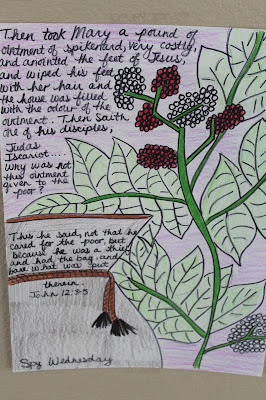 Then took Mary a pound of
ointment of spikenard, very costly,
and anointed the feet of Jesus,
and wiped his feet
with her hair and
the house was filled
with the odour of the
ointment. Then Saith
one of his disciples,
Judas
Iscariot...
Why was not
this ointment
given to the
poor?
This he said, not that he
cared for the poor, but
because he was a thief
and had the bag, and
bare what was put
therein.
John 12:3-5
Spy Wednesday